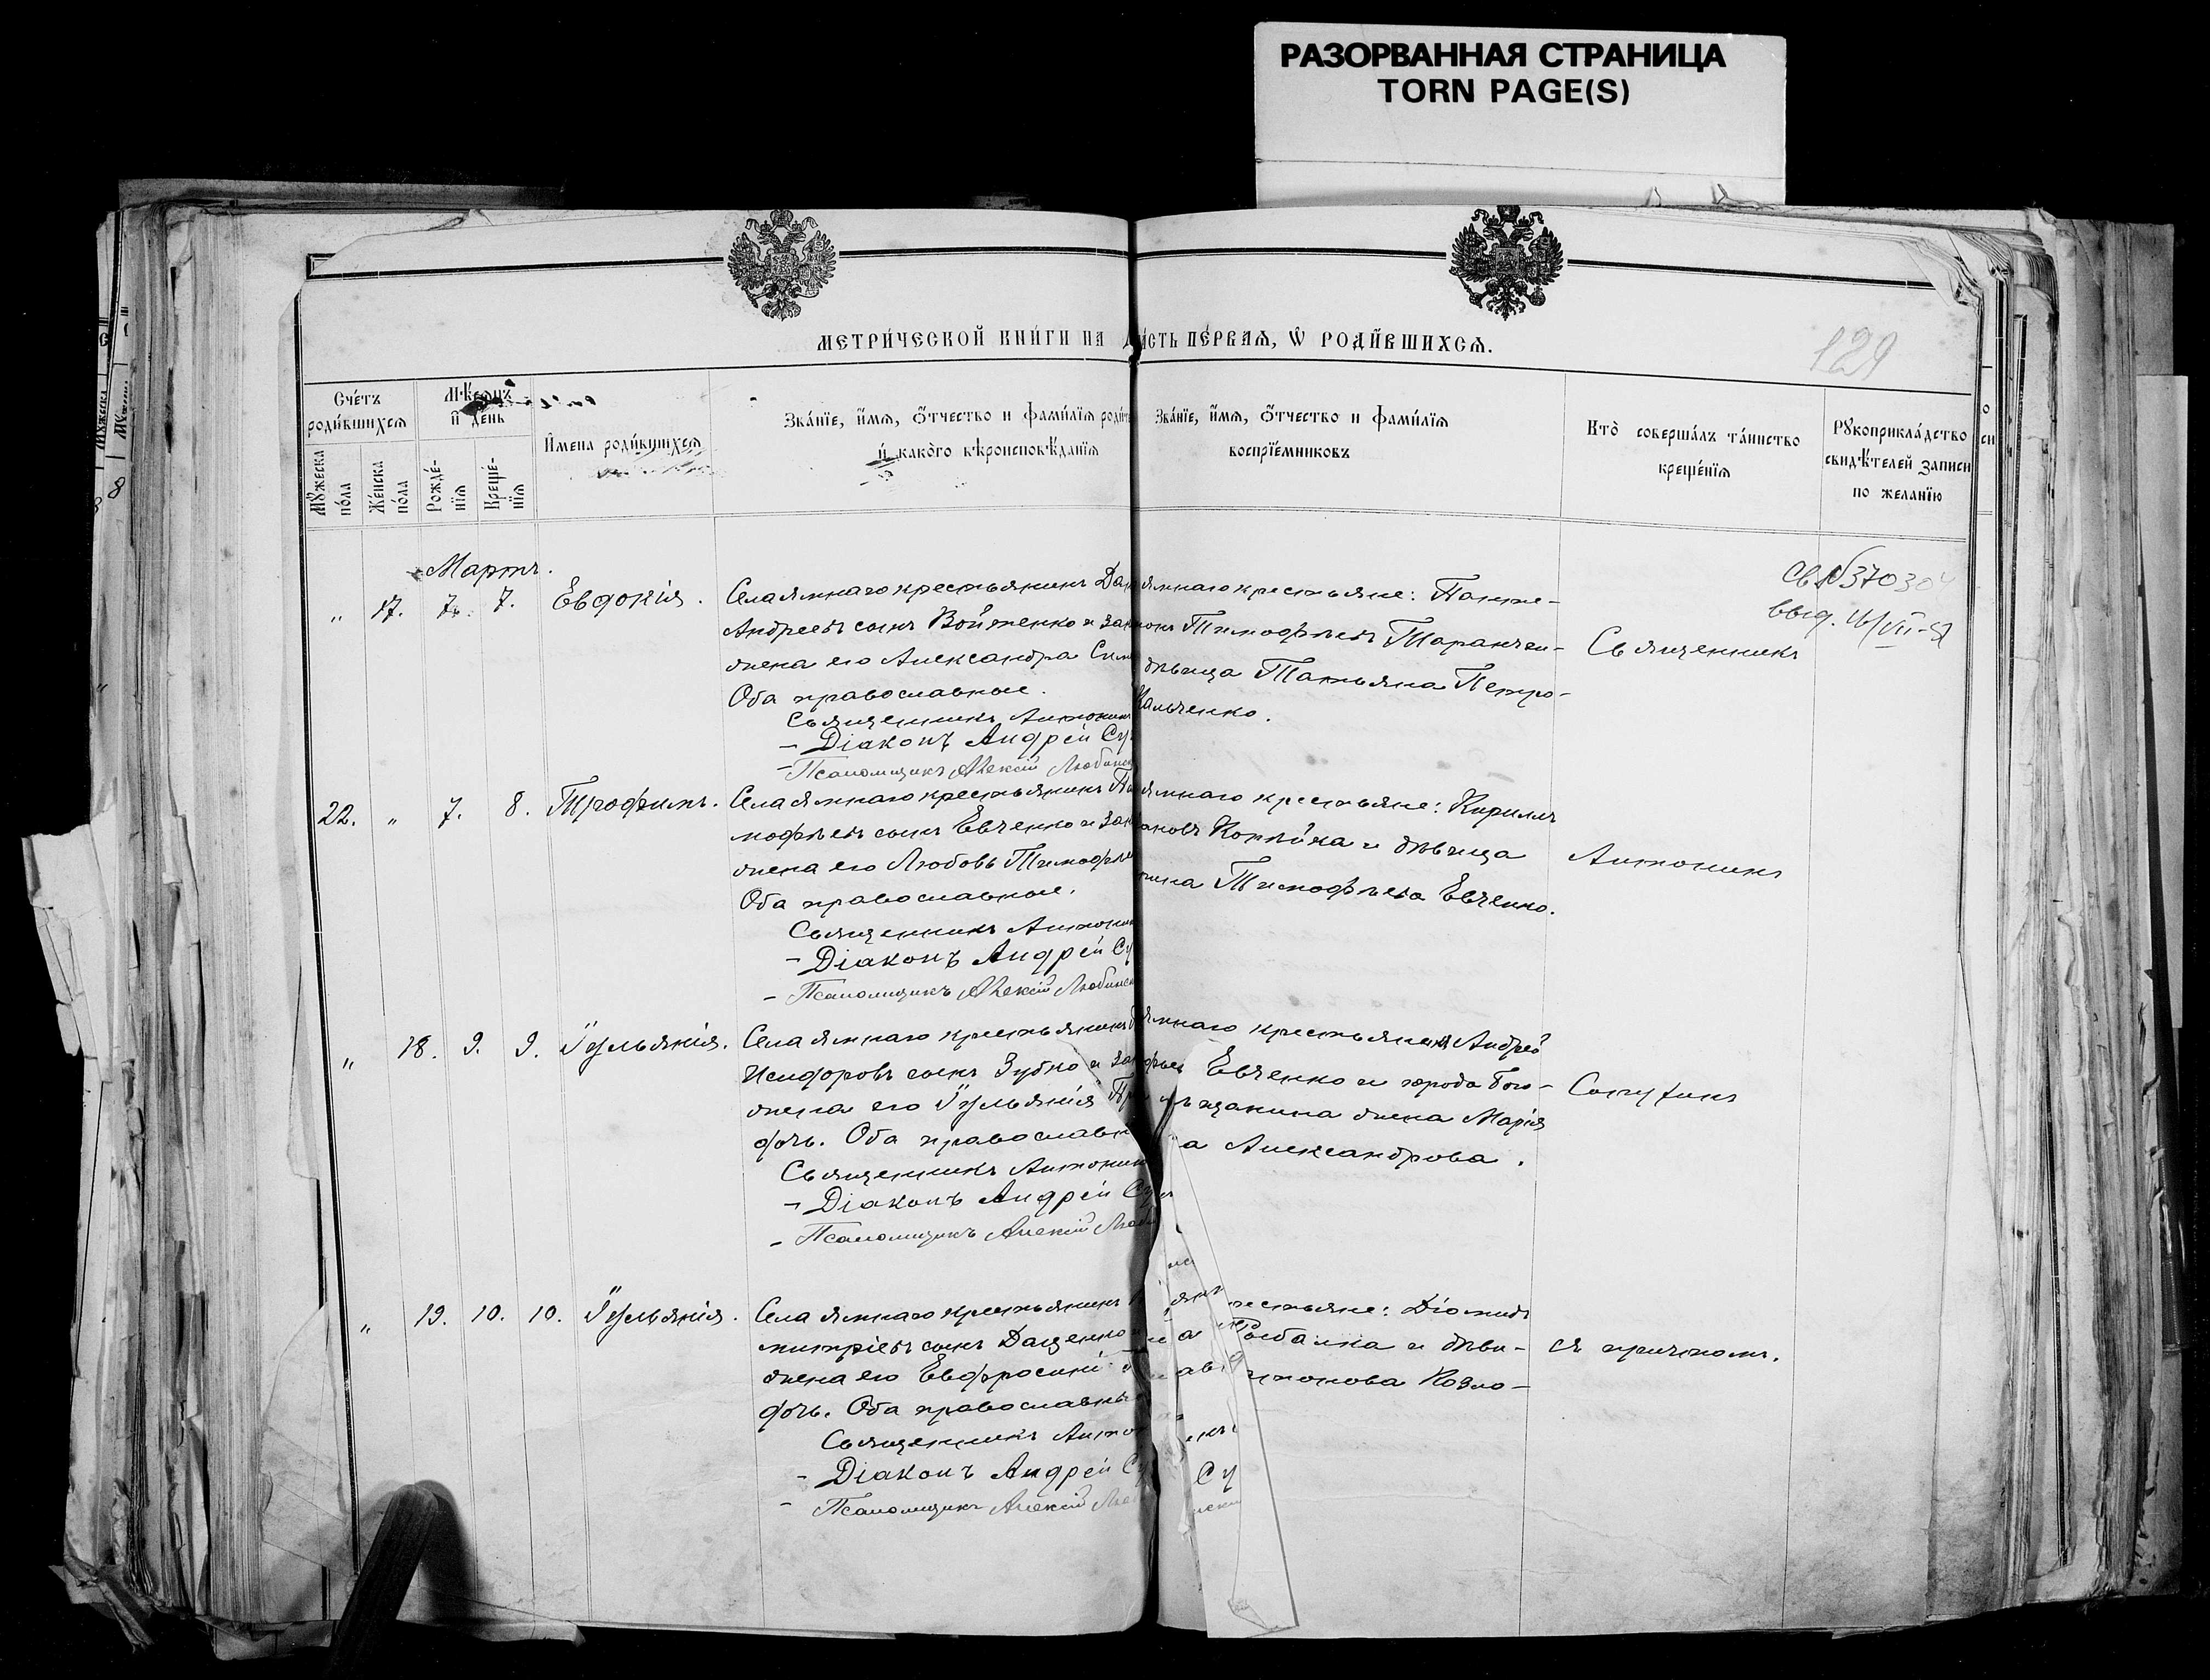 РАЗОРВАННАЯ СТРАНИЦА
TORN PAGE(S)
МЕТРИ́ЧЕСКОЙ КНИ́ГИ НА
ча́сть пе́рваѧ, ѡ҆ роди́вшихсѧ.
129
Сче́тъ роди́вшихсѧ
Мꙋ́жеска по́ла
Же́нска по́ла
Мѣ́сѧцъ и҆ де́нь
Рожде́нїѧ
Креще́нїѧ
И҆мена роди́вшихсѧ
Зва́нїе, и҆́мѧ, ѻ҆́тчество и фами́лїѧ роди́те
и҆ како́гѡ вѣроисповѣ́данїѧ
Зва́нїе, и҆́мѧ, ѻ҆́тчество и фами́лїѧ
воспрїе́мниковъ
Кто̀ соверша́лъ та́инство
креще́нїѧ
Рꙋкоприкла́дство
свидѣ́телей записи
по жела́нїю
Мартъ.
" 17. 7. 7. Евдокія.
Села Ямнаго крестьянинъ Да
Андреевъ сынъ Войтенко и зак
жена его Александра Сим
Оба православные.
Священникъ Антонинъ
– Діаконъ Андрей Су
– Псаломщикъ Алексій Любинск
ямнаго крестьяне: Панте-
Тимофѣевъ Таранчен-
дѣвица Татьяна Петро-
Кальченко.
Священникъ
Св №3703
выд.
22. " 7. 8. Трофимъ.
Села Ямнаго крестьянинъ
мофѣевъ сынъ Евченко и зак
жена его Любовь Тимофѣе
Оба православные.
Священникъ Антонин
– Діаконъ Андрей Су
– Псаломщикъ Алексій Любинск
ямнаго крестьяне: Кириллъ
ановъ Корѣйка и дѣвица
Тимофѣева Евченко.
Антонинъ
" 18. 9. 9. Іульянія.
Села Ямнаго крестьянинъ
Исидоровъ сынъ Зубко и зак
жена его Іульянія
дочь. Оба православн
Священникъ Антонин
– Діаконъ Андрей Су
– Псаломщикъ Алексій Люби
ямнаго крестьянинъ Андрей
фѣевъ Евченко и города Бого-
мѣщанина жена Марія
а Александрова.
" 19. 10. 10. Іульянія.
Села Ямнаго крестьянинъ
митріевъ сынъ Даценко и
жена его Евфросині
дочь. Оба православны
Священникъ Анто
– Діаконъ Андрей Су
– Псаломщикъ Алексій Лю
крестьяне: Діомидъ
Рыбалка и дѣви-
Антонова Козло-
съ причтомъ.